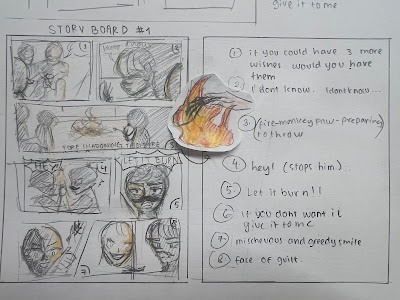 give it to me
STORY BOARD #1
FORE SHADOWING TO FIRE
HEY!
LET IT BURN
1 if you could have 3 more
wishes would you have
them
2 I dont know. I dont know...
3. (fire-monkey paw-preparing
to throw
4. hey! (stops him)..
5. Let it burn!!
6 if you dont want it
give it to me
7. mischevous and greedy smile
8 face of guilt.